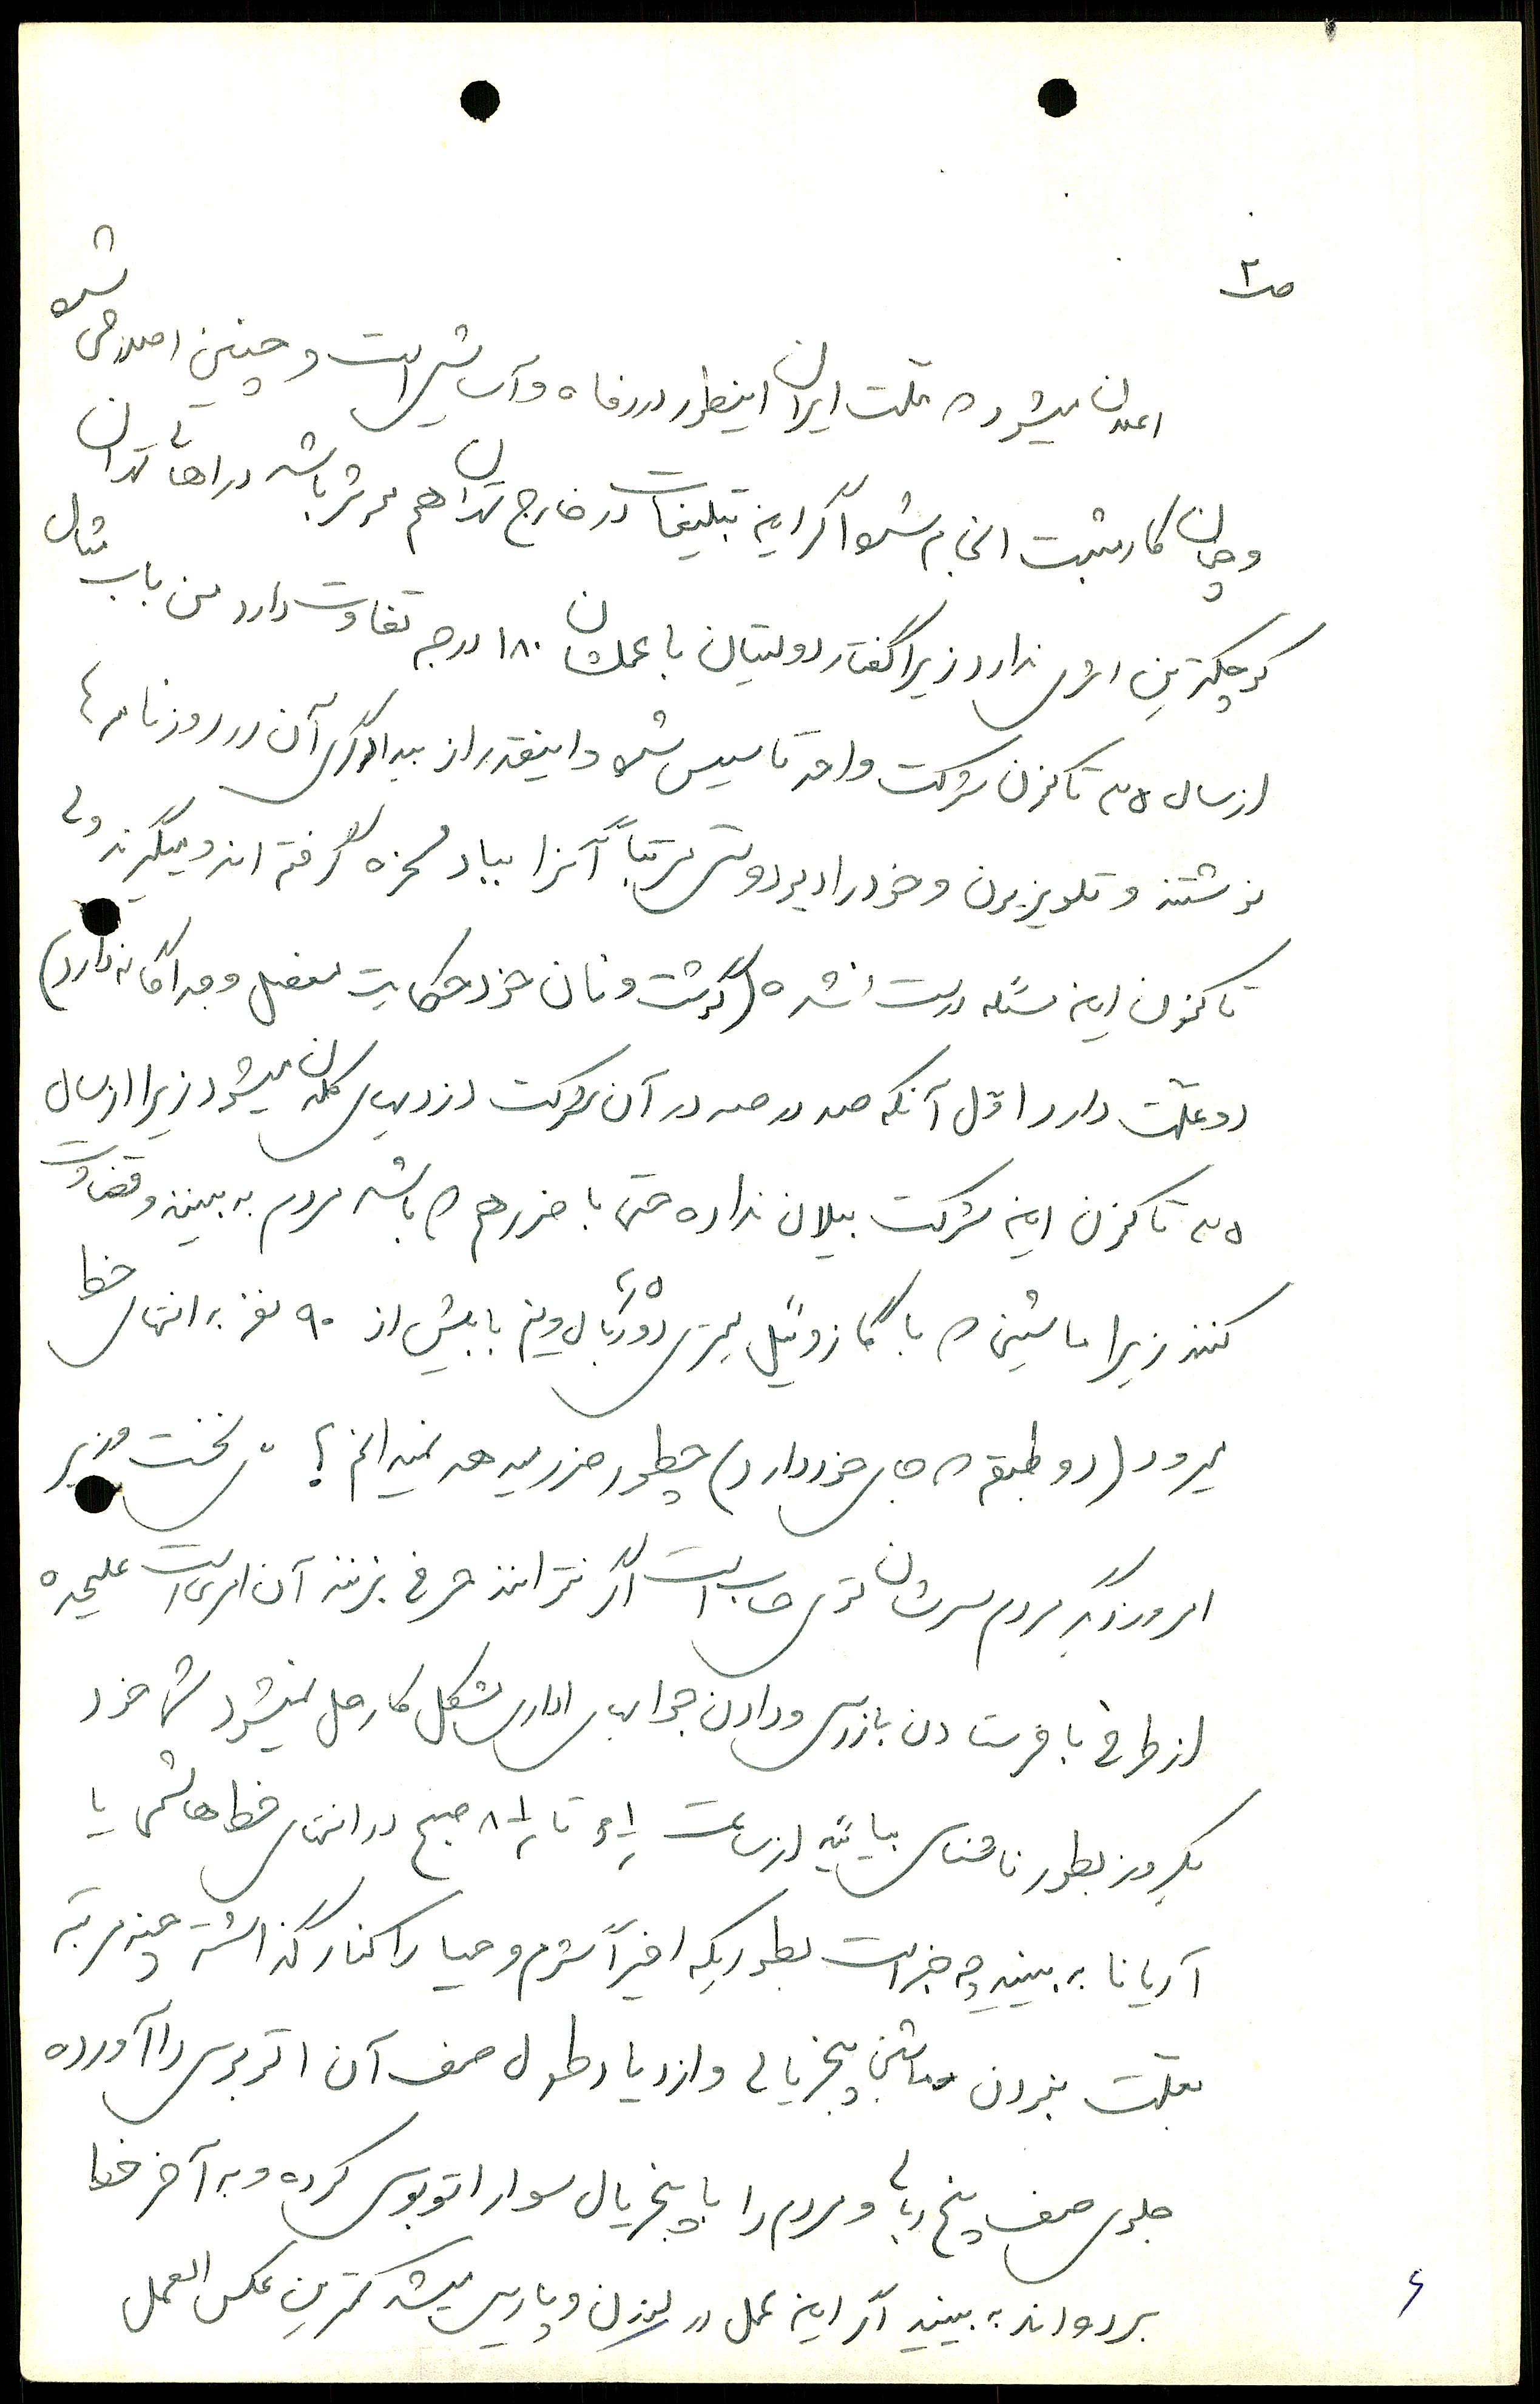 ص ۲
اعلان میشود که ملت ایران اینطور در رفاه و آسایش است و چنین اصلاحی شده
و چنان کار مثبت انجام شده اگر این تبلیغات در خارج تهران هم موثر باشد در اهالی تهران
کوچکترین اثری ندارد زیرا گفتار دولتیان با عملشان ۱۸۰ درجه تفاوت دارد من باب مثال
از سال ۳۵ تاکنون شرکت واحد تاسیس شده و اینقدر از بیدادگری آن در روزنامه ها
نوشتند و تلویزیون و خود رادیو دولتی مرتباً آنرا بباد مسخره گرفته اند و میگیرند ولی
تاکنون این مسئله درست نشده (گوشت و نان خود حکایت مفصل و جداگانه دارد)
دو علت دارد اول آنکه صد در صد در آن شرکت دزدیهای کلان میشود زیرا از سال
۳۵ تاکنون این شرکت بیلان نداده حتی با ضرر هم که باشد مردم به بینند و قضاوت
کنند زیرا ماشین که با گازوئیل لیتری ۲٫۵ ریال و نیم با بیش از ۹۰ نفر به انتهای خط
میرود (دو طبقه که جای خود دارد) چطور ضرر میدهد نمیدانم؟ نخست وزیر
امروز دیگر مردم سرشان توی حساب است اگر نتوانند حرفی بزنند آن امری است علیحده
از طرفی با فرستادن بازرس و دادن جوابهای اداری مشکل کار حل نمیشود شما خود
یکروز بطور ناشناس بیائید از ساعت ۶ ۱/۲ تا ۸ ۱/۲ صبح در انتهای خط هاشمی یا
آریانا به بینید چه خبر است بطوریکه اخیراً شرم و حیا را کنار گذاشته چند مرتبه
بعلت نبودن ماشین پنجریالی و ازدیاد طول صف آن اتوبوس را آورده
جلوی صف پنج ریالی و مردم را با پنجریال سوار اتوبوس کرده و به آخر خط
برده اند به بینید اگر این عمل در لوزان و پاریس میشد کمترین عکس العمل
۶